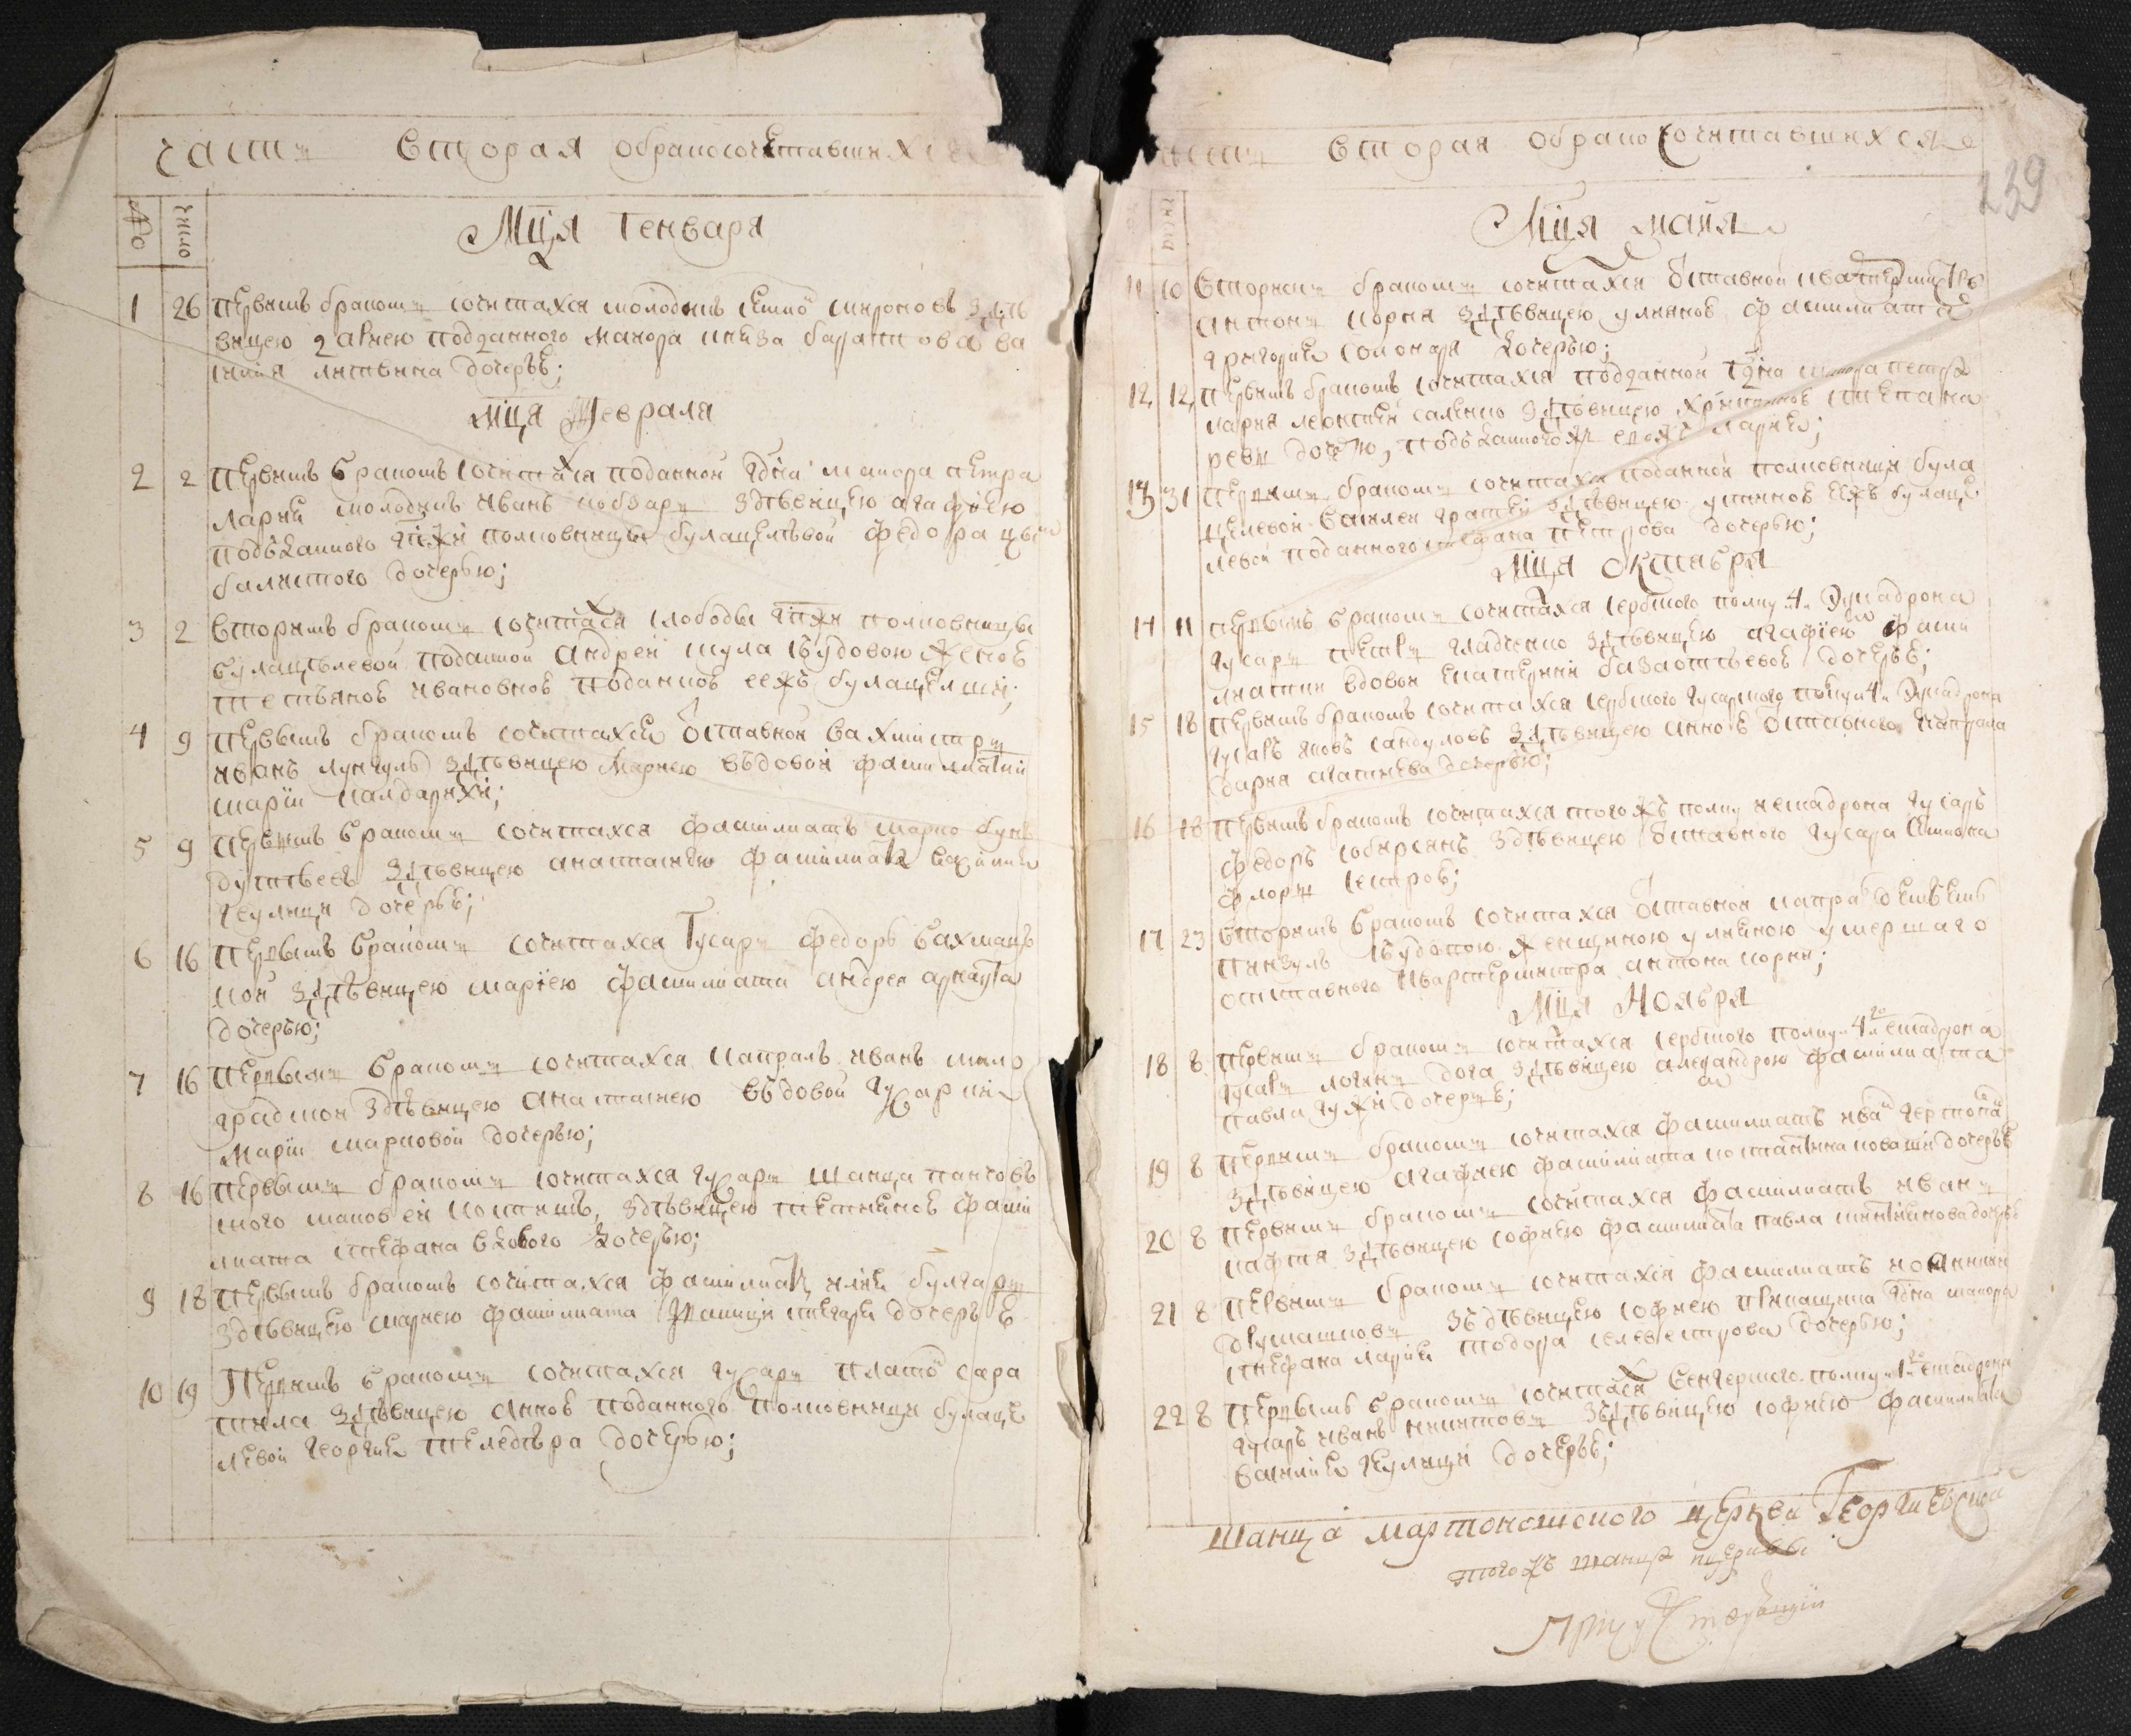 часть вторая обракосочетавшихся
Мца Генваря
1 26 первымъ бракомъ сочетахся молодикъ Симиѡ мироновъ здѣ
вицею
подданного маиора княза баратова ва
силия литвина дочерѣ;
мца Февраля
2 2 первымъ бракомъ сочетахся поданной гдна маиора петра
ларий молодикъ иванъ кобзарь здѣвицею агафиею
подъданного гпжи полковницы булацелѣвой федора цы
балистого дочерью;
3 2 вторымъ бракомъ сочетахся слободы гпжи полковницы
булацѣлевой поданной андрей шула въдовою женоѣ
тетьяноѣ ивановноѣ поданноѣ еежъ булацелши;
4 9 первымъ бракомъ сочетахся ѿставной вахмистръ
иванъ лунгулъ здѣвицею мариею въдовой фамилиатки
марии калдарихи;
5 9 первымъ бракомъ сочетахся фамилиатъ марко бузъ
дуттьевъ здѣвицею анатаниею фамилиата василия
геулици дочерѣ;
6 16 первымъ бракомъ сочетахся Гусаръ федоръ бахмацъ
кой здѣвицею мариею фамилиата андрея арнаута
дочерью;
7 16 первымъ бракомъ сочетахся капралъ иванъ мало
градской здѣвицею анатаниею въдовой гусарки
марии марковой дочерью;
8 16 первымъ бракомъ сочетахся гусаръ шанца панчовъ
ского маковей костинъ, здѣвицею текликоѣ фами
лиата стефана вдового дочерью;
9 18 первымъ бракомъ сочетахся фамилиатъ илия булгаръ
здѣвицею мариею фамилиата
дочерѣ
10 19 Первымъ бракомъ сочетахся гусаръ платѡ сара
пила здѣвицею анноѣ поданного полковници булаце
левой георгия
дочерью;
часть вторая обракосочетавшихся
239
Мца майя
11 10 вторымъ бракомъ сочетахся ѿставной квартермистръ
антонъ корня здѣвицею улияноѣ фамилиата
григория солонаря дочерью;
12 12 первымъ бракомъ сочетахся подданной гдна маиора петра
лария леонтий саленко здѣвицею
стефана
дочерю, подъданного
лария;
13 31 первымъ бракомъ сочетахся поданной полковници була
целевой василей
здѣвицею устиноѣ еежъ булаце
левой поданного стефана петрова дочерью;
мца октября
14 11 первымъ бракомъ сочетахся сербского полку 4 эскадрона
гусаръ петръ гладченко здѣвицею агафиею фами
лиатки вдовой екатерини
дочерѣ;
15 18 первымъ бракомъ сочетахся сербского гусарского полку 4 эскадрона
гусаръ яковъ сандуловъ здѣвицею анноѣ ѿставного капрала
дочерью;
16 18 первымъ бракомъ сочетахся тогожъ полку иескадрона гусаръ
федоръ
здѣвицею ѿставного гусара
флоръ сестроѣ;
17 23 вторымъ бракомъ сочетахся ѿставной капралъ
пинзулъ въдовою женщиною улияною умершаго
отставного квартермистра антона корни;
Мца Ноября
18 8 первымъ бракомъ сочетахся сербского полку 4го ескадрона
гусаръ логинъ дога здѣвицею александрою фамилиата
павла гужи дочерѣ;
19 8 первымъ бракомъ сочетахся фамилиатъ иванъ
здѣвицею агафиею фамилиата костантина
дочерѣ
20 8 первымъ бракомъ сочетахся фамилиатъ иванъ
кафтя здѣвицею софиею фамилиата павла
дочерѣ
21 8 первымъ бракомъ сочетахся фамилиатъ иоаннъ
здѣвицею софиею
гдна маиора
стефана лария тодора селевестрова дочерью;
22 8 первымъ бракомъ сочетахся венгерского полку 1го ескадрона
гусаръ иванъ никитовъ здѣвицею софиею фамилиата
василия геулици дочерѣ;
шанца мартоношского церкви Георгиевской
тогожъ шанца церкви